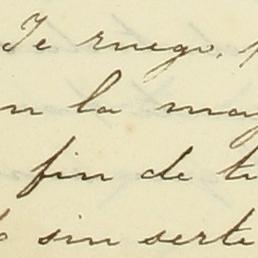 Te ruego,
en la may
fin de tu
sin serte